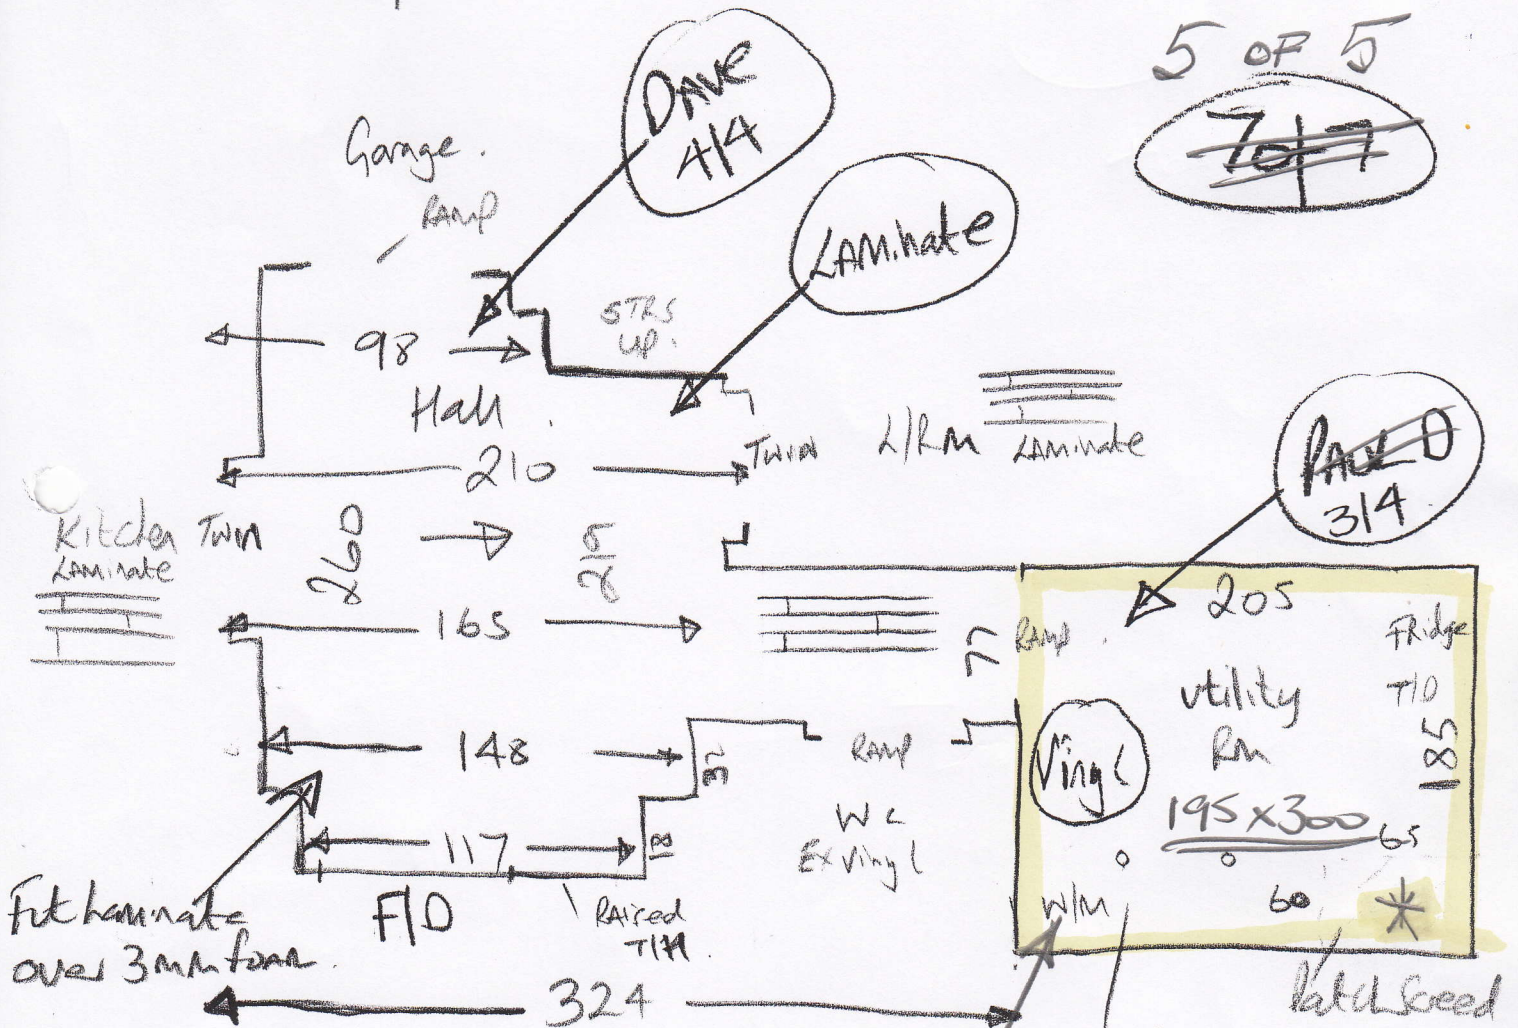 5 OF 5
7 of 7
DAVE
4/4
Garage.
RAMP
LAMinate
STRS
UP.
98
Hall
210
Twin
L/RM
LAMinate
PAUL D
3/4
Kitchen
LAMinate
Twin
260
165
77
RAMP
205
FRidge
T/D
185
utility
RM
Vinyl
195 x 300
65
60
W/M
148
32
RAMP
WC
Ex Vinyl
117
18
F/D
RAiced
T/H
Fit Laminate
over 3mm foam.
324
Patch Screed